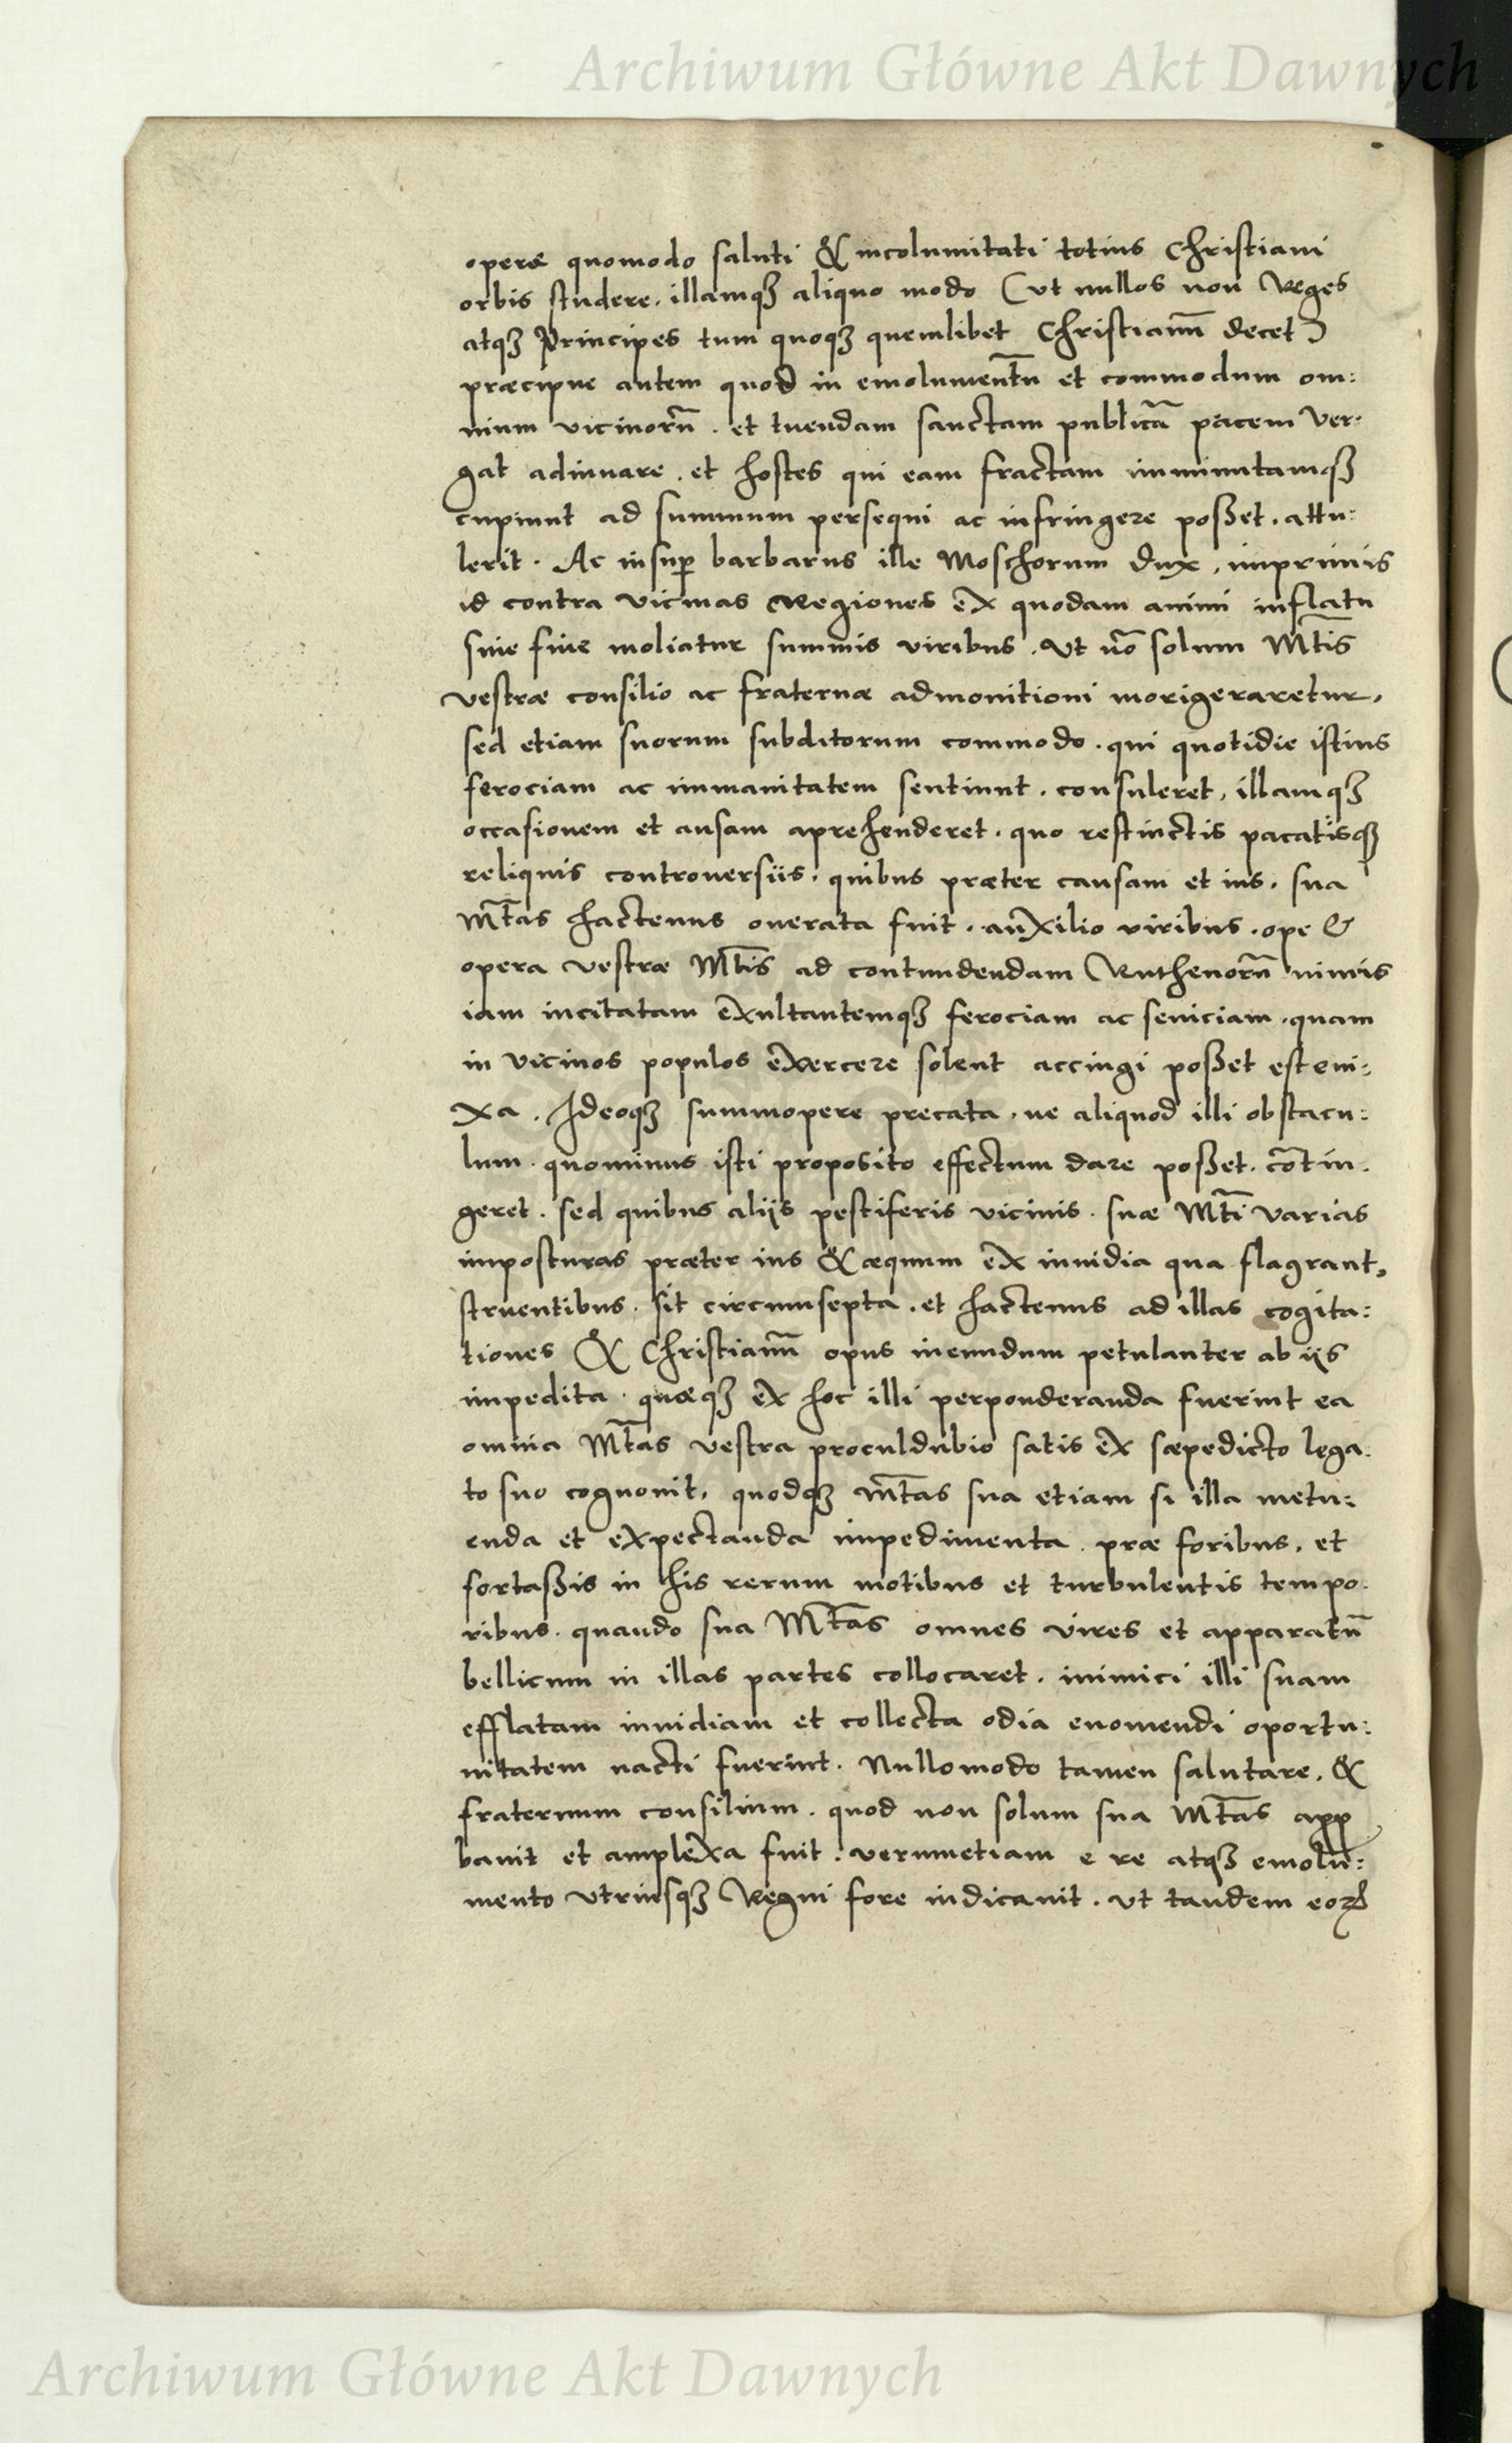 Archiwum Główne Akt Dawnych
operæ quomodo saluti & incolumitati totius Christiani
orbis studere, illamq₃ aliquo modo (vt nullos non Reges
atq₃ Principes tum quoq₃ quemlibet Christianū decet)
præcipue autem quod in emolumentū et commodum om:
nium vicinorū . et tuendam sanctam publicā pacem ver:
gat adiuuare . et hostes qui eam fractam imminutamq₃
cupiunt ad summum persequi ac infringere poßet . attu:
lerit . Ac insuꝑ barbarus ille Moschorum Dux, imprimis
id contra vicinas Regiones ex quodam animi inflatu
sine fine moliatur summis viribus . Vt nō solum Mt̄is
vestræ consilio ac fraternæ admonitioni morigeraretur,
sed etiam suorum subditorum commodo . qui quotidie istius
ferociam ac immanitatem sentiunt . consuleret, illamq₃
occasionem et ansam aprehenderet . quo restinctis pacatisq₃
reliquis controuersiis . quibus præter causam et ius . sua
Mt̄as hactenus onerata fuit . auxilio viribus . ope &
opera vestræ Mt̄is ad contundendam Ruthenorū nimis
iam incitatam exultantemq₃ ferociam ac seuiciam . quam
in vicinos populos exercere solent accingi poßet est eni:
xa . Ideoq₃ summopere precata . ne aliquod illi obstacu:
lum . quominus isti proposito effectum dare poßet . cōtin.
geret . sed quibus aliis pestiferis vicinis . suæ Mt̄i varias
imposturas præter ius & æquum ex inuidia qua flagrant,
struentibus . sit circumsepta . et hactenus ad illas cogita:
tiones & Christianū opus ineundum petulanter ab iis
impedita . quæq₃ ex hoc illi perponderanda fuerint ea
omnia Mt̄as vestra proculdubio satis ex sæpedicto lega.
to suo cognouit, quodq₃ Mt̄as sua etiam si illa metu:
enda et expectanda impedimenta . præ foribus, et
fortaßis in his rerum motibus et turbulentis tempo.
ribus . quando sua Mt̄as omnes vires et apparatū
bellicum in illas partes collocaret . inimici illi suam
efflatam inuidiam et collecta odia euomendi oportu:
nitatem nacti fuerint . Nullomodo tamen salutare, &
fraternum consilium . quod non solum sua Mt̄as app
bauit et amplexa fuit . verumetiam e re atq₃ emolu:
mento vtriusq₃ Regni fore iudicauit . Vt tandem eoꝝ
Archiwum Główne Akt Dawnych